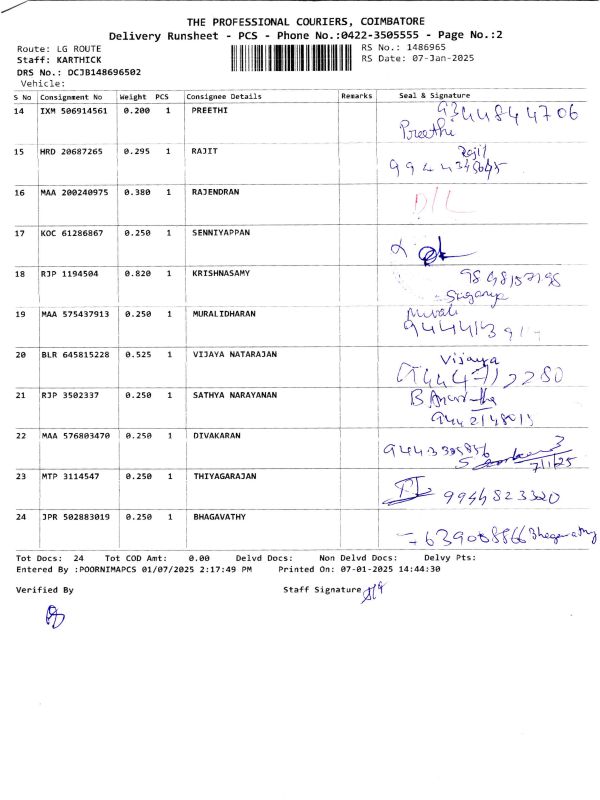 THE PROFESSIONAL COURIERS, COIMBATORE
Delivery Runsheet - PCS - Phone No.:0422-3505555 - Page No.:2
Route: LG ROUTE RS No.: 1486965
Staff: KARTHICK RS Date: 07-Jan-2025
DRS No.: DCJB148696502
Vehicle:
S No Consignment No Weight PCS Consignee Details Remarks Seal & Signature
14 IXM 506914561 0.200 1 PREETHI 9344844706
Preethi
15 HRD 20687265 0.295 1 RAJIT Rajit
16 MAA 200240975 0.380 1 RAJENDRAN D/L
17 KOC 61286867 0.250 1 SENNIYAPPAN
18 RJP 1194504 0.820 1 KRISHNASAMY
Suganya
19 MAA 575437913 0.250 1 MURALIDHARAN Murali
20 BLR 645815228 0.525 1 VIJAYA NATARAJAN Vijaya
21 RJP 3502337 0.250 1 SATHYA NARAYANAN
22 MAA 576803470 0.250 1 DIVAKARAN
7/1/25
23 MTP 3114547 0.250 1 THIYAGARAJAN 9994823320
24 JPR 502883019 0.250 1 BHAGAVATHY
Tot Docs: 24 Tot COD Amt: 0.00 Delvd Docs: Non Delvd Docs: Delvy Pts:
Entered By :POORNIMAPCS 01/07/2025 2:17:49 PM Printed On: 07-01-2025 14:44:30
Verified By Staff Signature